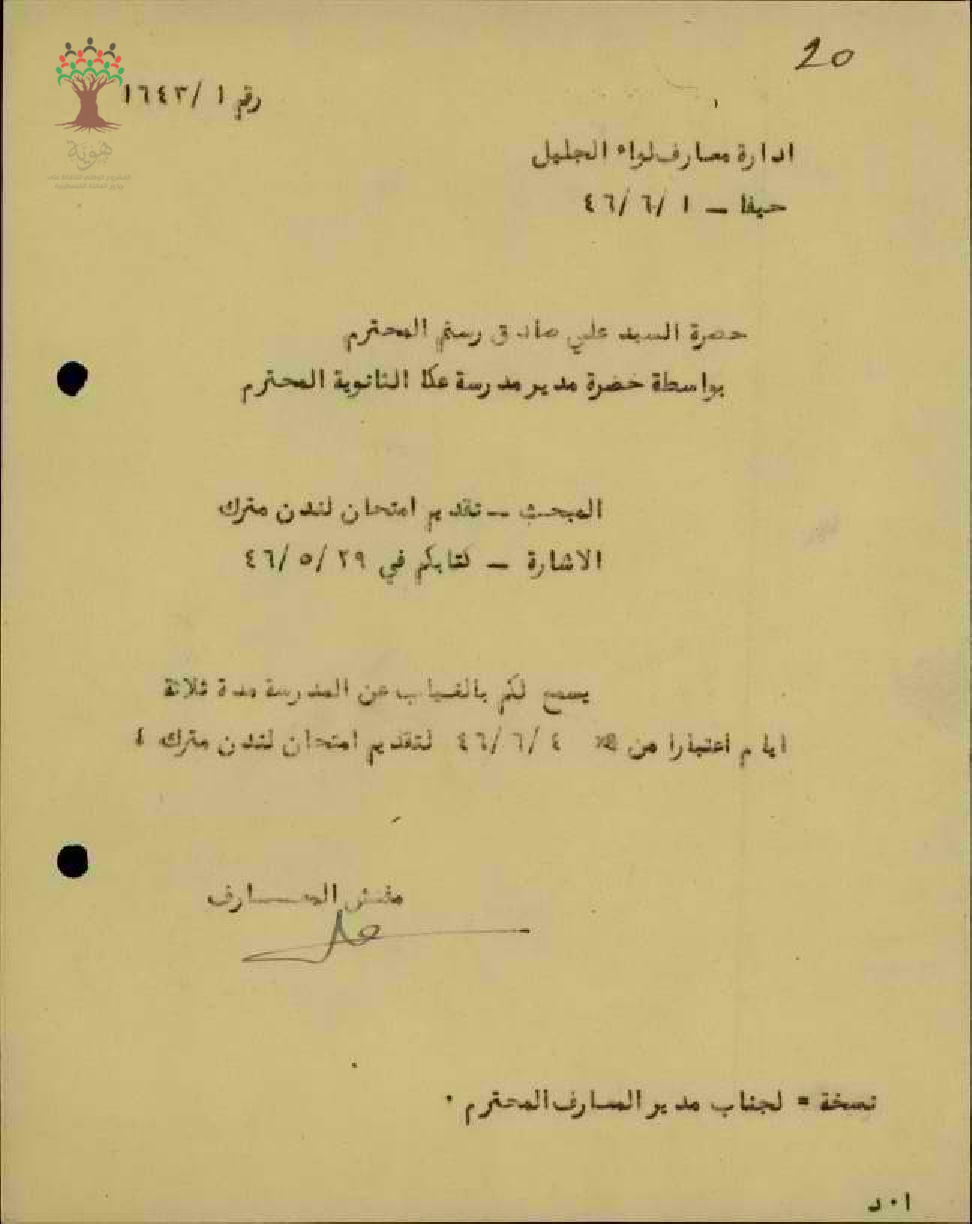 20
رقم ١ /١٦٤٣
هوية
ادارة معارف لواء الجليل
حيفا – ١ /٦ /٤٦
حضرة السيد علي صادق رستم المحترم
بواسطة حضرة مدير مدرسة عكا الثانوية المحترم
المبحث – تقديم امتحان لندن مترك
الاشارة – كتابكم في ٢٩ /٥ /٤٦
يسمح لكم بالغياب عن المدرسة مدة ثلاثة
ايام اعتبارا من ٤ /٦ /٤٦ لتقديم امتحان لندن مترك
مفتش المعارف
نسخة = لجناب مدير المعارف المحترم ٠
ا ٠ د